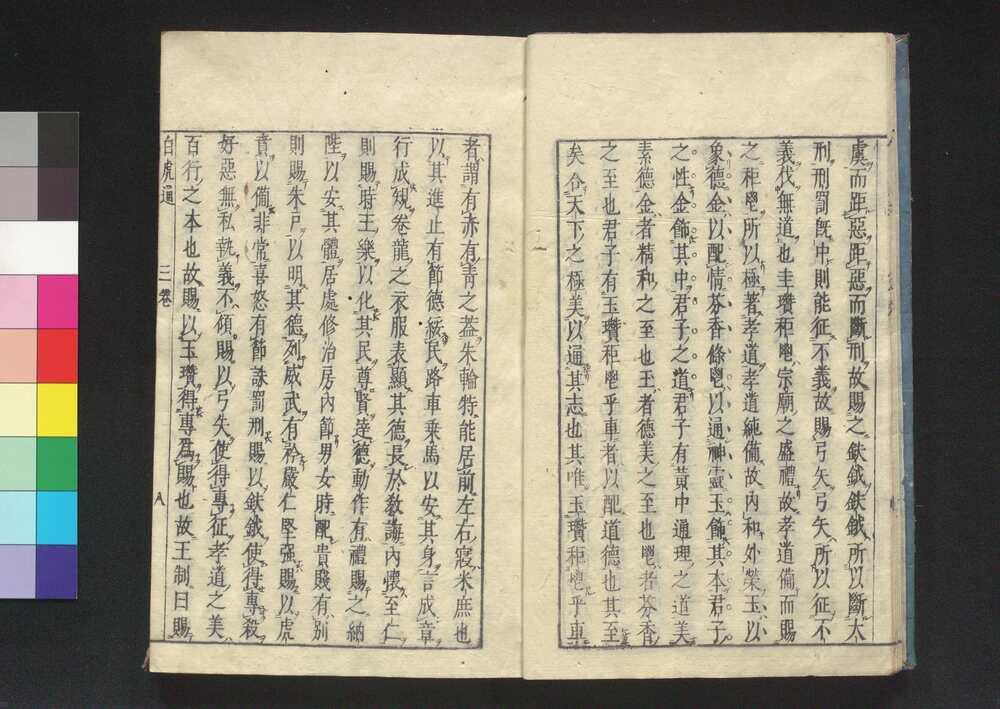 虞而距惡距惡而斷刑故賜之鈇鉞鈇鉞所以斷大
刑刑罰旣中則能征不義故賜弓矢弓矢所以征不
義伐無道也圭瓚秬鬯宗廟之盛禮故孝道備而賜
之秬鬯所以極著孝道孝道純備故內和外榮玉以
象德金以配情芬香條鬯以通神靈玉飾其本君子
之性金飾其中君子之道君子有黃中通理之道美
素德金者精和之至也玉者德美之至也鬯者芬香
之至也君子有玉瓚秬鬯乎車者以配道德也其至
矣合天下之極美以通其志也其唯玉瓚秬鬯乎車
者謂有赤有靑之蓋朱輪特能居前左右寢米庶也
以其進止有節德綏民路車乘馬以安其身言成章
行成規卷龍之衣服表顯其德長於敎誨內懷至仁
則賜時王樂以化其民尊賢達德動作有禮賜之納
陛以安其體居處修治房內節男女時配貴賤有別
則賜朱戶以明其德列威武有矜嚴仁堅强賜以虎
賁以備非常喜怒有節誅罰刑賜以鈇鉞使得專殺
好惡無私執義不傾賜以弓矢使得專征孝道之美
百行之本也故賜以玉瓚得專爲賜也故王制曰賜
白虎通 三卷 八